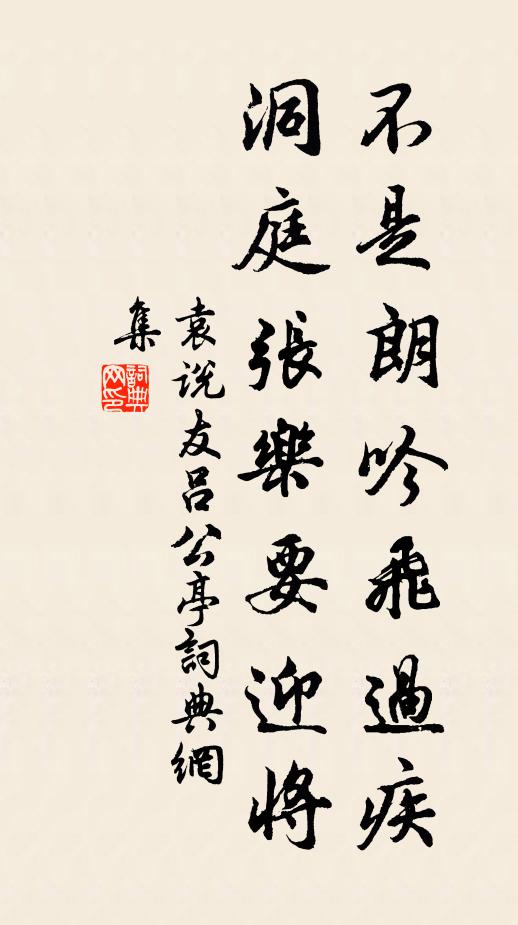 不是朗吟飛過疾
洞庭張樂要迎將
袁說友呂公亭詞典網
集
詞典
网印